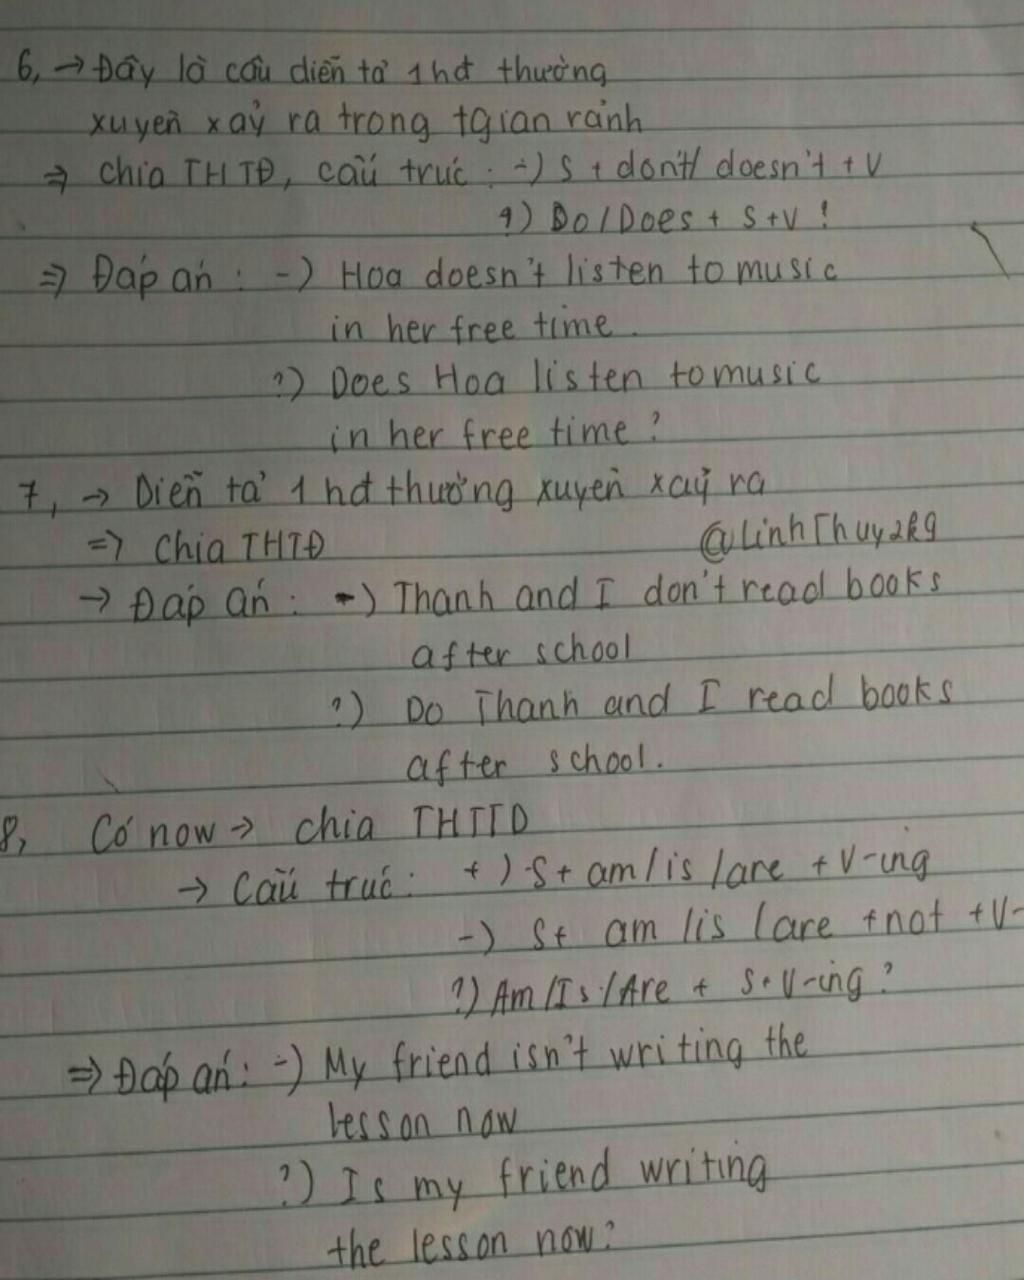 6, → Đây là câu diễn tả 1 hđ thường
xuyên xảy ra trong tgian rảnh
⇒ chia THTĐ, cấu trúc : -) S + don't/ doesn't + V
?) Do/Does + S+V ?
⇒ Đáp án : -) Hoa doesn't listen to music
in her free time.
?) Does Hoa listen to music
in her free time ?
7, → Diễn tả 1 hđ thường xuyên xảy ra
=> Chia THTĐ
@LinhThuy2k9
→ Đáp án : -) Thanh and I don't read books
after school
?) Do Thanh and I read books
after school.
8, Có now → chia THTTD
→ Cấu trúc: +) S+ am/is /are + V-ing
-) S+ am /is /are +not +V-
?) Am/Is/Are + S+V-ing ?
=> Đáp án : -) My friend isn't writing the
lesson now
?) Is my friend writing
the lesson now?